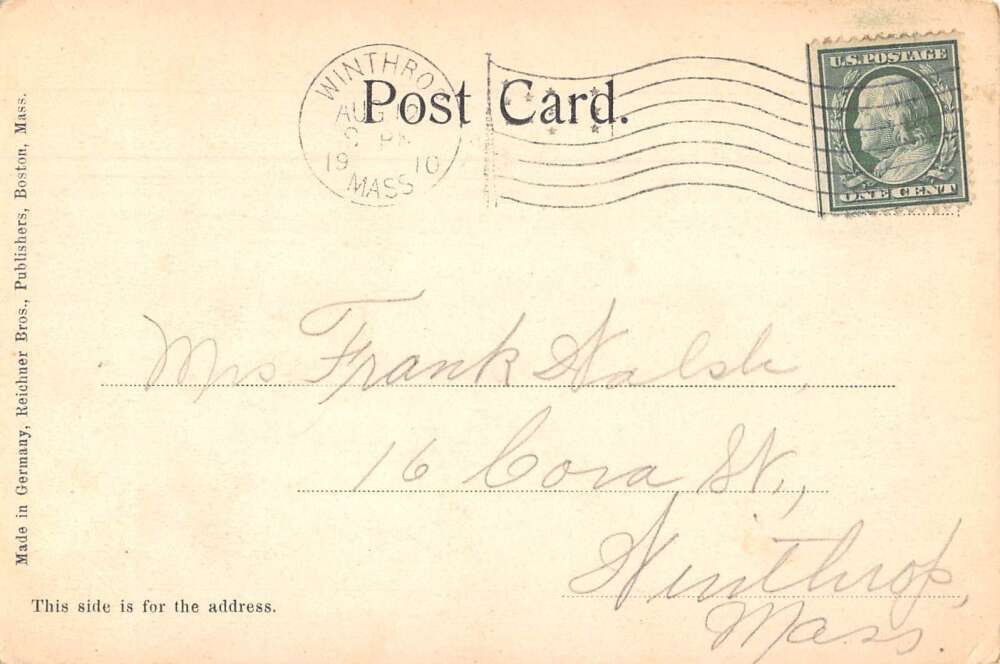 WINTHROP
AUG
PM
19 10
MASS
Post Card.
U.S. POSTAGE
ONE CENT
Made in Germany, Reichner Bros., Publishers, Boston, Mass.
Mrs Frank Walsh,
16 Cora St.,
Winthrop,
Mass.
This side is for the address.